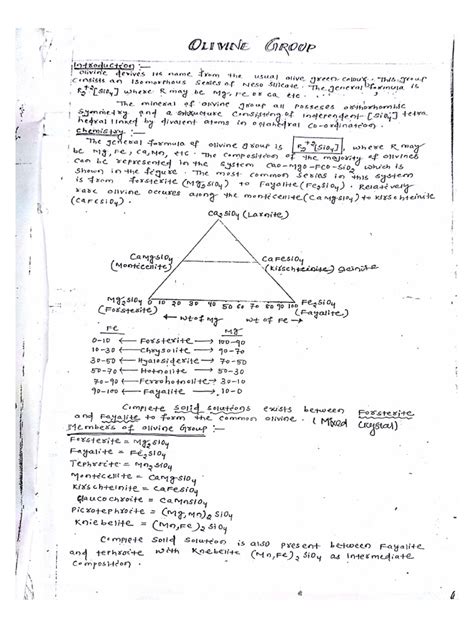 OLIVINE GROUP
Introduction :—
Olivine derives its name from the usual olive green colour. This group
consists an isomorphous series of Neso silicate. The general formula is
R₂⁺²[SiO₄] where R may be Mg, Fe or Ca etc.
The mineral of olivine group all possess orthorhombic
symmetry and a structure consisting of independent [SiO₄] tetra
hedral linked by divalent atoms in octahedral co-ordination.
Chemistry :—
The general formula of olivine group is R₂⁺²[SiO₄], where R may
be Mg, Fe, Ca, Mn, etc. The composition of the majority of olivines
can be represented in the system CaO-MgO-FeO-SiO₂ which is
shown in the figure. The most common series in this system
is from forsterite (Mg₂SiO₄) to Fayalite (Fe₂SiO₄). Relatively
rare olivine occures along the monticellite (CaMgSiO₄) to kirschteinite
(CaFeSiO₄).
Ca₂SiO₄ (Larnite)
CaMgSiO₄ (Monticellite)
CaFeSiO₄ (Kirschteinite)
Mg₂SiO₄ (Forsterite)
0 10 20 30 40 50 60 70 80 90 100
Fe₂SiO₄ (Fayalite)
← Wt of Mg Wt of Fe →
Fe Mg
0-10 ← Forsterite → 100-90
10-30 ← Chrysolite → 90-70
30-50 ← Hyalosiderite → 70-50
50-70 ← Hotnolite → 50-30
70-90 ← Ferrohotnolite → 30-10
90-100 ← Fayalite → 10-0
Complete solid solutions exists between Forsterite
and Fayalite to form the common olivine. (Mixed Crystal)
Members of olivine Group :—
Forsterite = Mg₂SiO₄
Fayalite = Fe₂SiO₄
Tephroite = Mn₂SiO₄
Monticellite = CaMgSiO₄
Kirschteinite = CaFeSiO₄
Glaucochroite = CaMnSiO₄
Picrotephroite = (Mg,Mn)₂SiO₄
Kniebelite = (Mn,Fe)₂SiO₄
Complete solid solution is also present between Fayalite
and tephroite with Knebelite (Mn,Fe)₂SiO₄ as intermediate
composition.